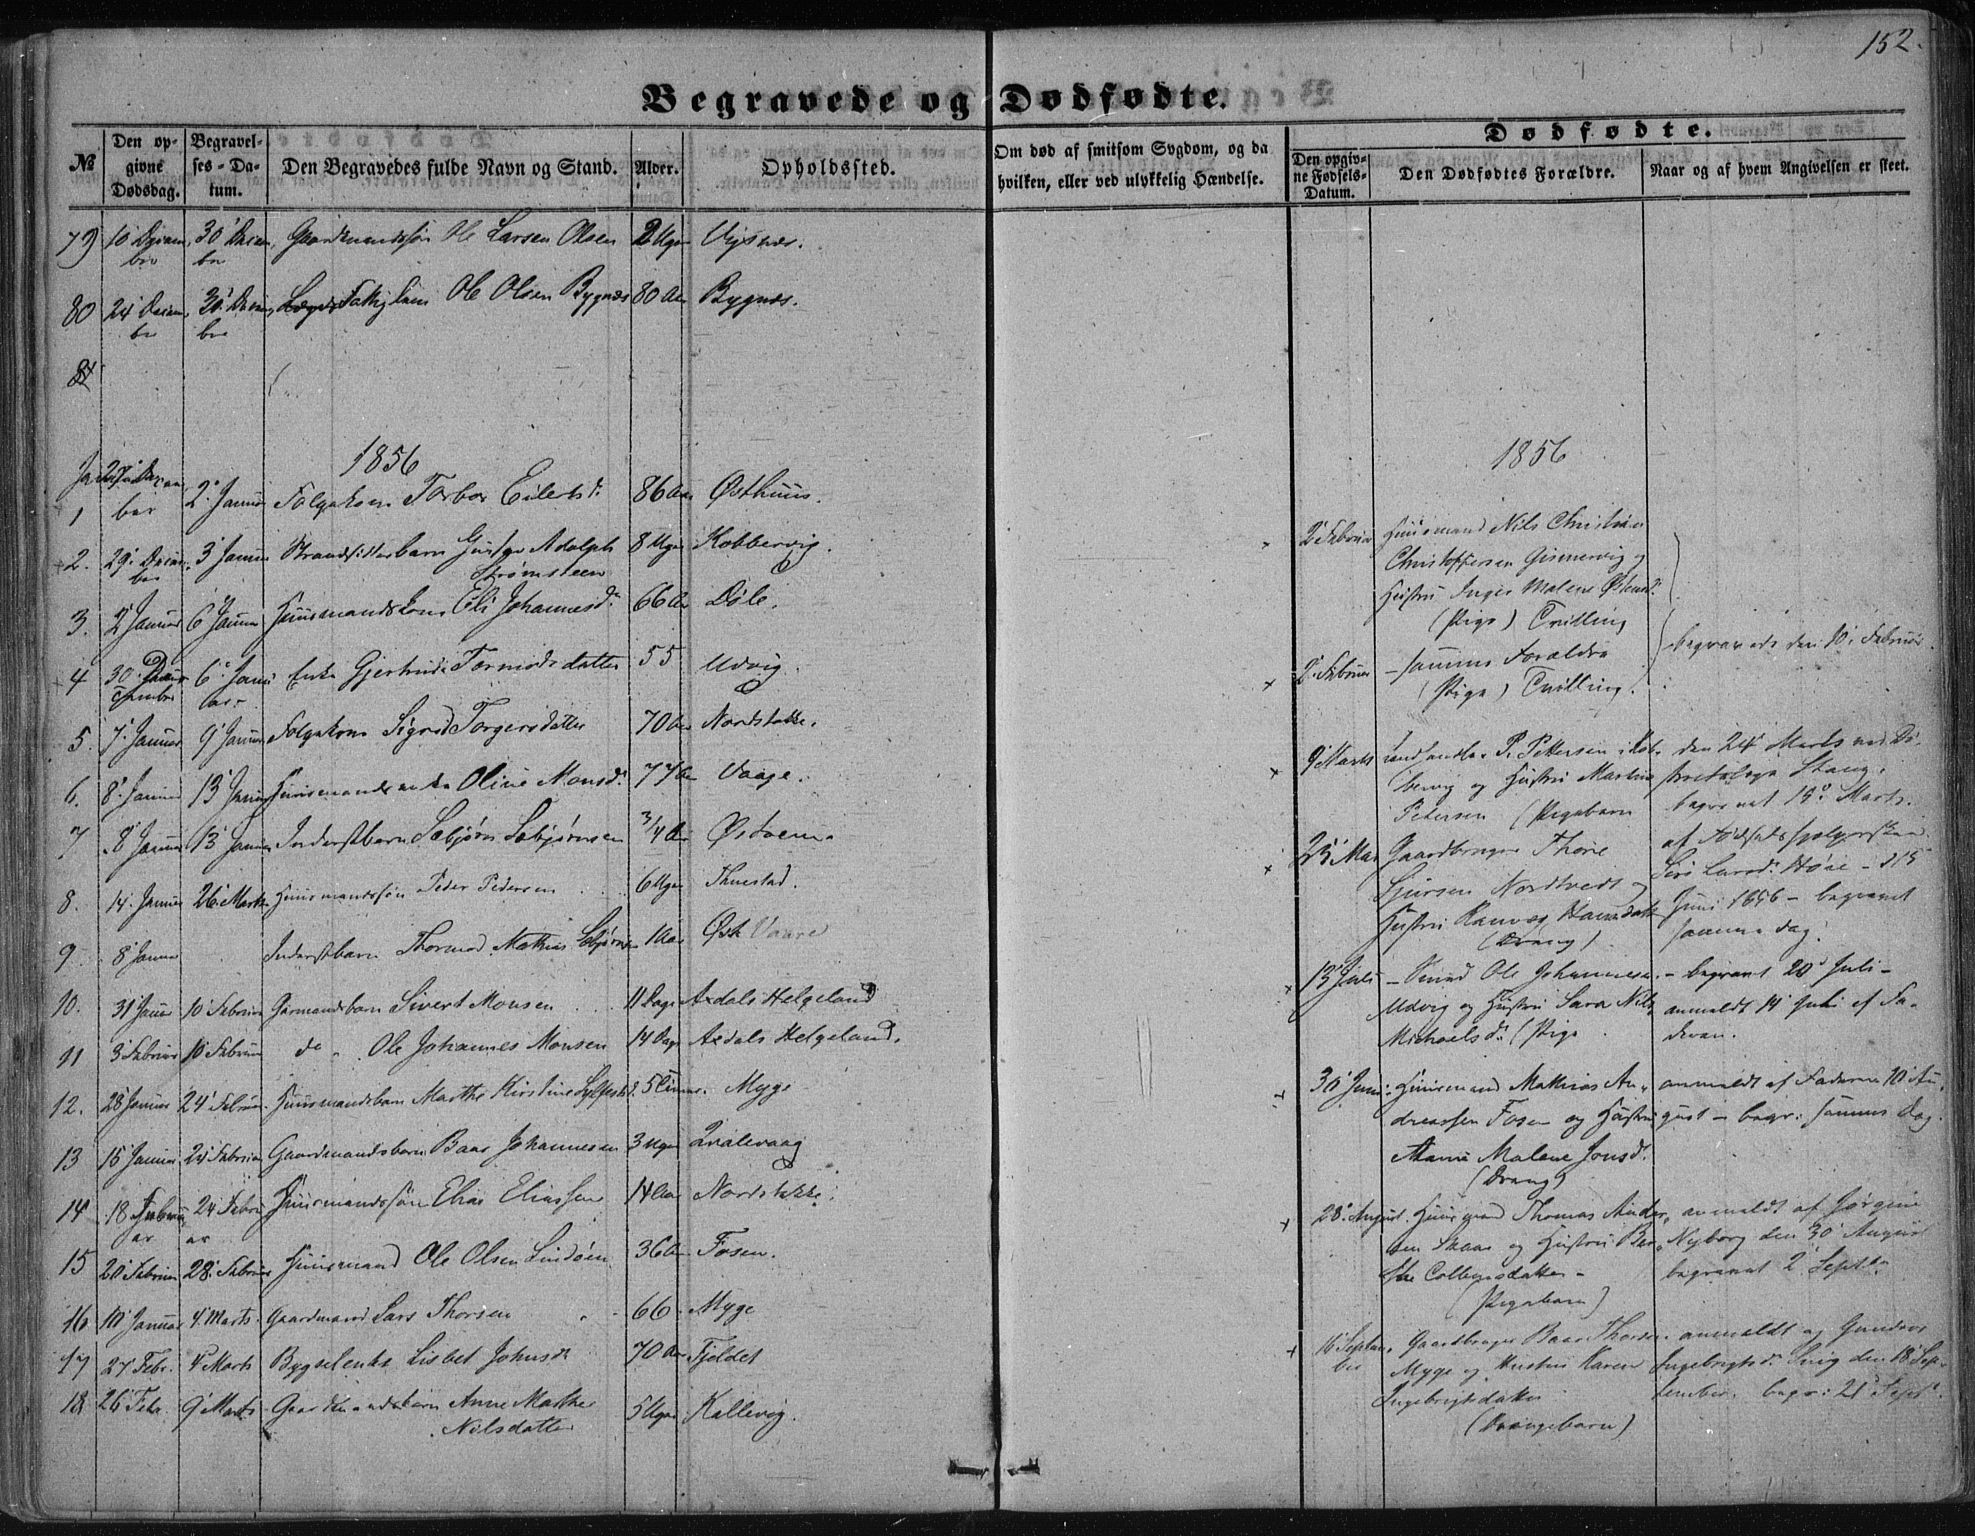 152.
Begravede og Dødfødte.
№
Den opgivne Dødsdag.
Begravelses-Datum.
Den Begravedes fulde Navn og Stand.
Alder.
Opholdssted.
Om død af smitsom Sygdom, og da hvilken, eller ved ulykkelig Hændelse.
Dødfødte.
Den opgivne Fødsels-Datum.
Den Dødfødtes Forældre.
Naar og af hvem Angivelsen er skeet.
79 10 Decem 30' Decem Gaardmandssøn Ole Larsen Olsen 2 Uger
ber ber
80 24 Decem 30' Decem Ole Olsen Bygnæs 80 Aar Bygnæs.
ber ber
1856
1 ber 2' Januar Torbor Eilertsd. 86 Aar Østhuus.
2. 29' Decem 3' Januar Strandsidderbarn Gustav Adolph 8 Uger Kobbervig.
ber Strømsteen
3. 2' Januar 6' Januar Huusmandskone Eli Johannesd. 66 Aar Døle.
4 30 6' Janu Enke Gjertrude Tormodsdatter 55 Udvig.
ar
5. 7' Januar 9' Januar Sigrid Torgersdatter 70 Aar Nordstokke.
6. 8' Januar 13' Januar Huusmandsenke Oline Monsd. 77 Aar Vaage.
7 8' Januar 13' Januar Inderstbarn Sæbjørn Sæbjørnsen 3/4 Aar
8. 14. Januar 26' Marts Huusmandssøn Peder Pedersen 6 Uger Thuestad.
9 8' Januar Inderstbarn Thormod Mathias 1 Aar
10. 31 Januar 10' Februar Sivert Monsen 11 Dage Axdals Helgeland
11 3' Februar 10' Februar do " Ole Johannes Monsen 14 Dage Axdals Helgeland.
12. 28' Januar 24' Februar Huusmandsbarn Marthe Kirstine Myge
13 15 Januar 24' Februar Gaardmandsbarn Baar Johannesen 3 Uger Qvalevaag
14 18 Febru 24 Febru Huusmandssøn Elias Eliassen Nordstokke.
ar ar
15 20' Februar 28' Februar Huusmand Ole Olsen Lindøen 36 Aar Fosen.
16 10' Januar 4' Marts. Gaardmand Lars Thorsen 66 Myge
17 27 Febr. 4' Marts Lisbet Johnsd. 70 Aar Fjeldet
18 26' Febr. 9' Marts Gaardmandsbarn Anne Marthe 5 Uger Kallevig.
Nilsdatter
1856
2' Februar Huusmand Nils Christian
Christoffersen Gismervig og
Hustru Inger Malene
(Pige) Tvilling
2' Februar - samme Forældre begravede den 10' Februar
(Pige) Tvilling.
9' Marts P. Pettersen i Kob- den 24' Marts ved Di-
bervig og Hustru Martine
Petersen (Pigebarn begravet 19' Marts.
Gaardbruger Thore
Sjursen Nordtvedt og
Hustru Hansdatter Juni 1856 - begravet
(Dreng) samme dag.
13' Juli - Ole Johannesen - begravet 20' Juli -
Udvig og Hustru Sara Nils anmeldt 14' Juli af Fa-
Michaelsd. (Pige deren.
30' Juni Huusmand Mathias An- anmeldt af Faderen 10' Au-
dreassen Fosen og Hustru gust - begr: samme Dag.
Malene Jonsd.
(Dreng)
28' August. Huusmand Thomas Ander- anmeldt af Jørgine
sen Skaar og Hustru Nyborg den 30' August
begravet 2' Septbr.
(Pigebarn)
16 Septem Gaardbruger Baar Thorsen anmeldt af Gunvor
ber Myge og Hustru Karen Ingebrigtsd. den 18' Sep-
Ingebrigtsdatter tember. begr: 21' Sept.
(Drengebarn)